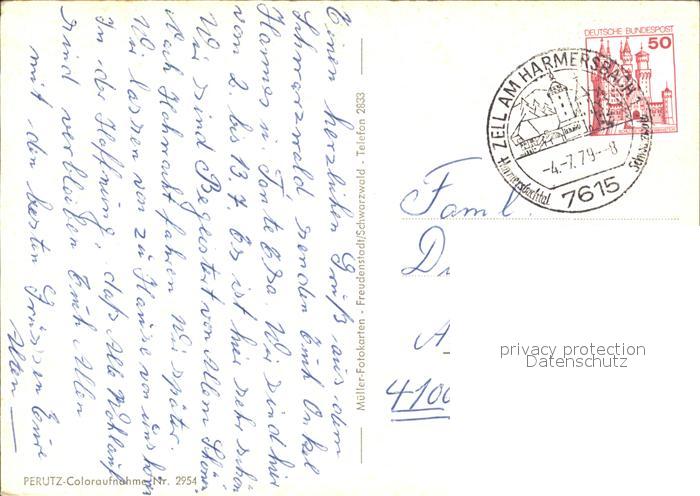 Einen herzlichen Gruß aus dem
Schwarzwald senden Euch Onkel
Hannes u. Tante Eva. Wir sind hier
von 2. bis 13.7. Es ist hier sehr schön
Wir sind Begeistert von Allem Schönen
Nach Hornach fahren Wir später.
Wir lassen von zu Hause von uns hören
In der Hoffnung, daß Alle Wohlauf
sind verbleiben Euch Allen
mit den besten Grüssen Eure
Alten
PERUTZ-Coloraufnahme Nr. 2954
Müller-Fotokarten - Freudenstadt/Schwarzwald - Telefon 2833
DEUTSCHE BUNDESPOST
50
ZELL AM HARMERSBACH 1
-4.-7.79--8
Harmersbachtal Schwarzwald
7615
Faml
D
A
4100
privacy protection
Datenschutz